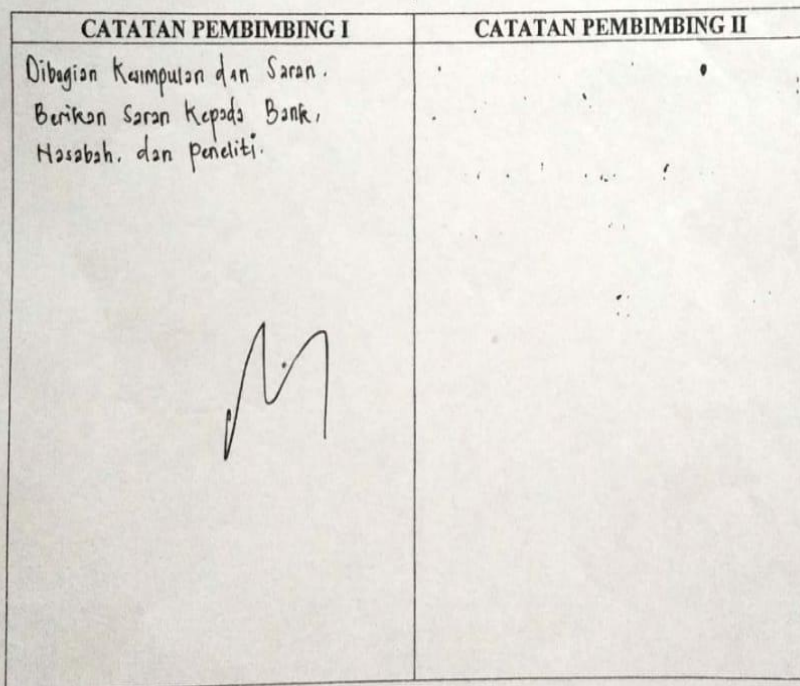 CATATAN PEMBIMBING I
CATATAN PEMBIMBING II
Dibagian Kesimpulan dan Saran.
Berikan Saran Kepada Bank,
Nasabah, dan peneliti.